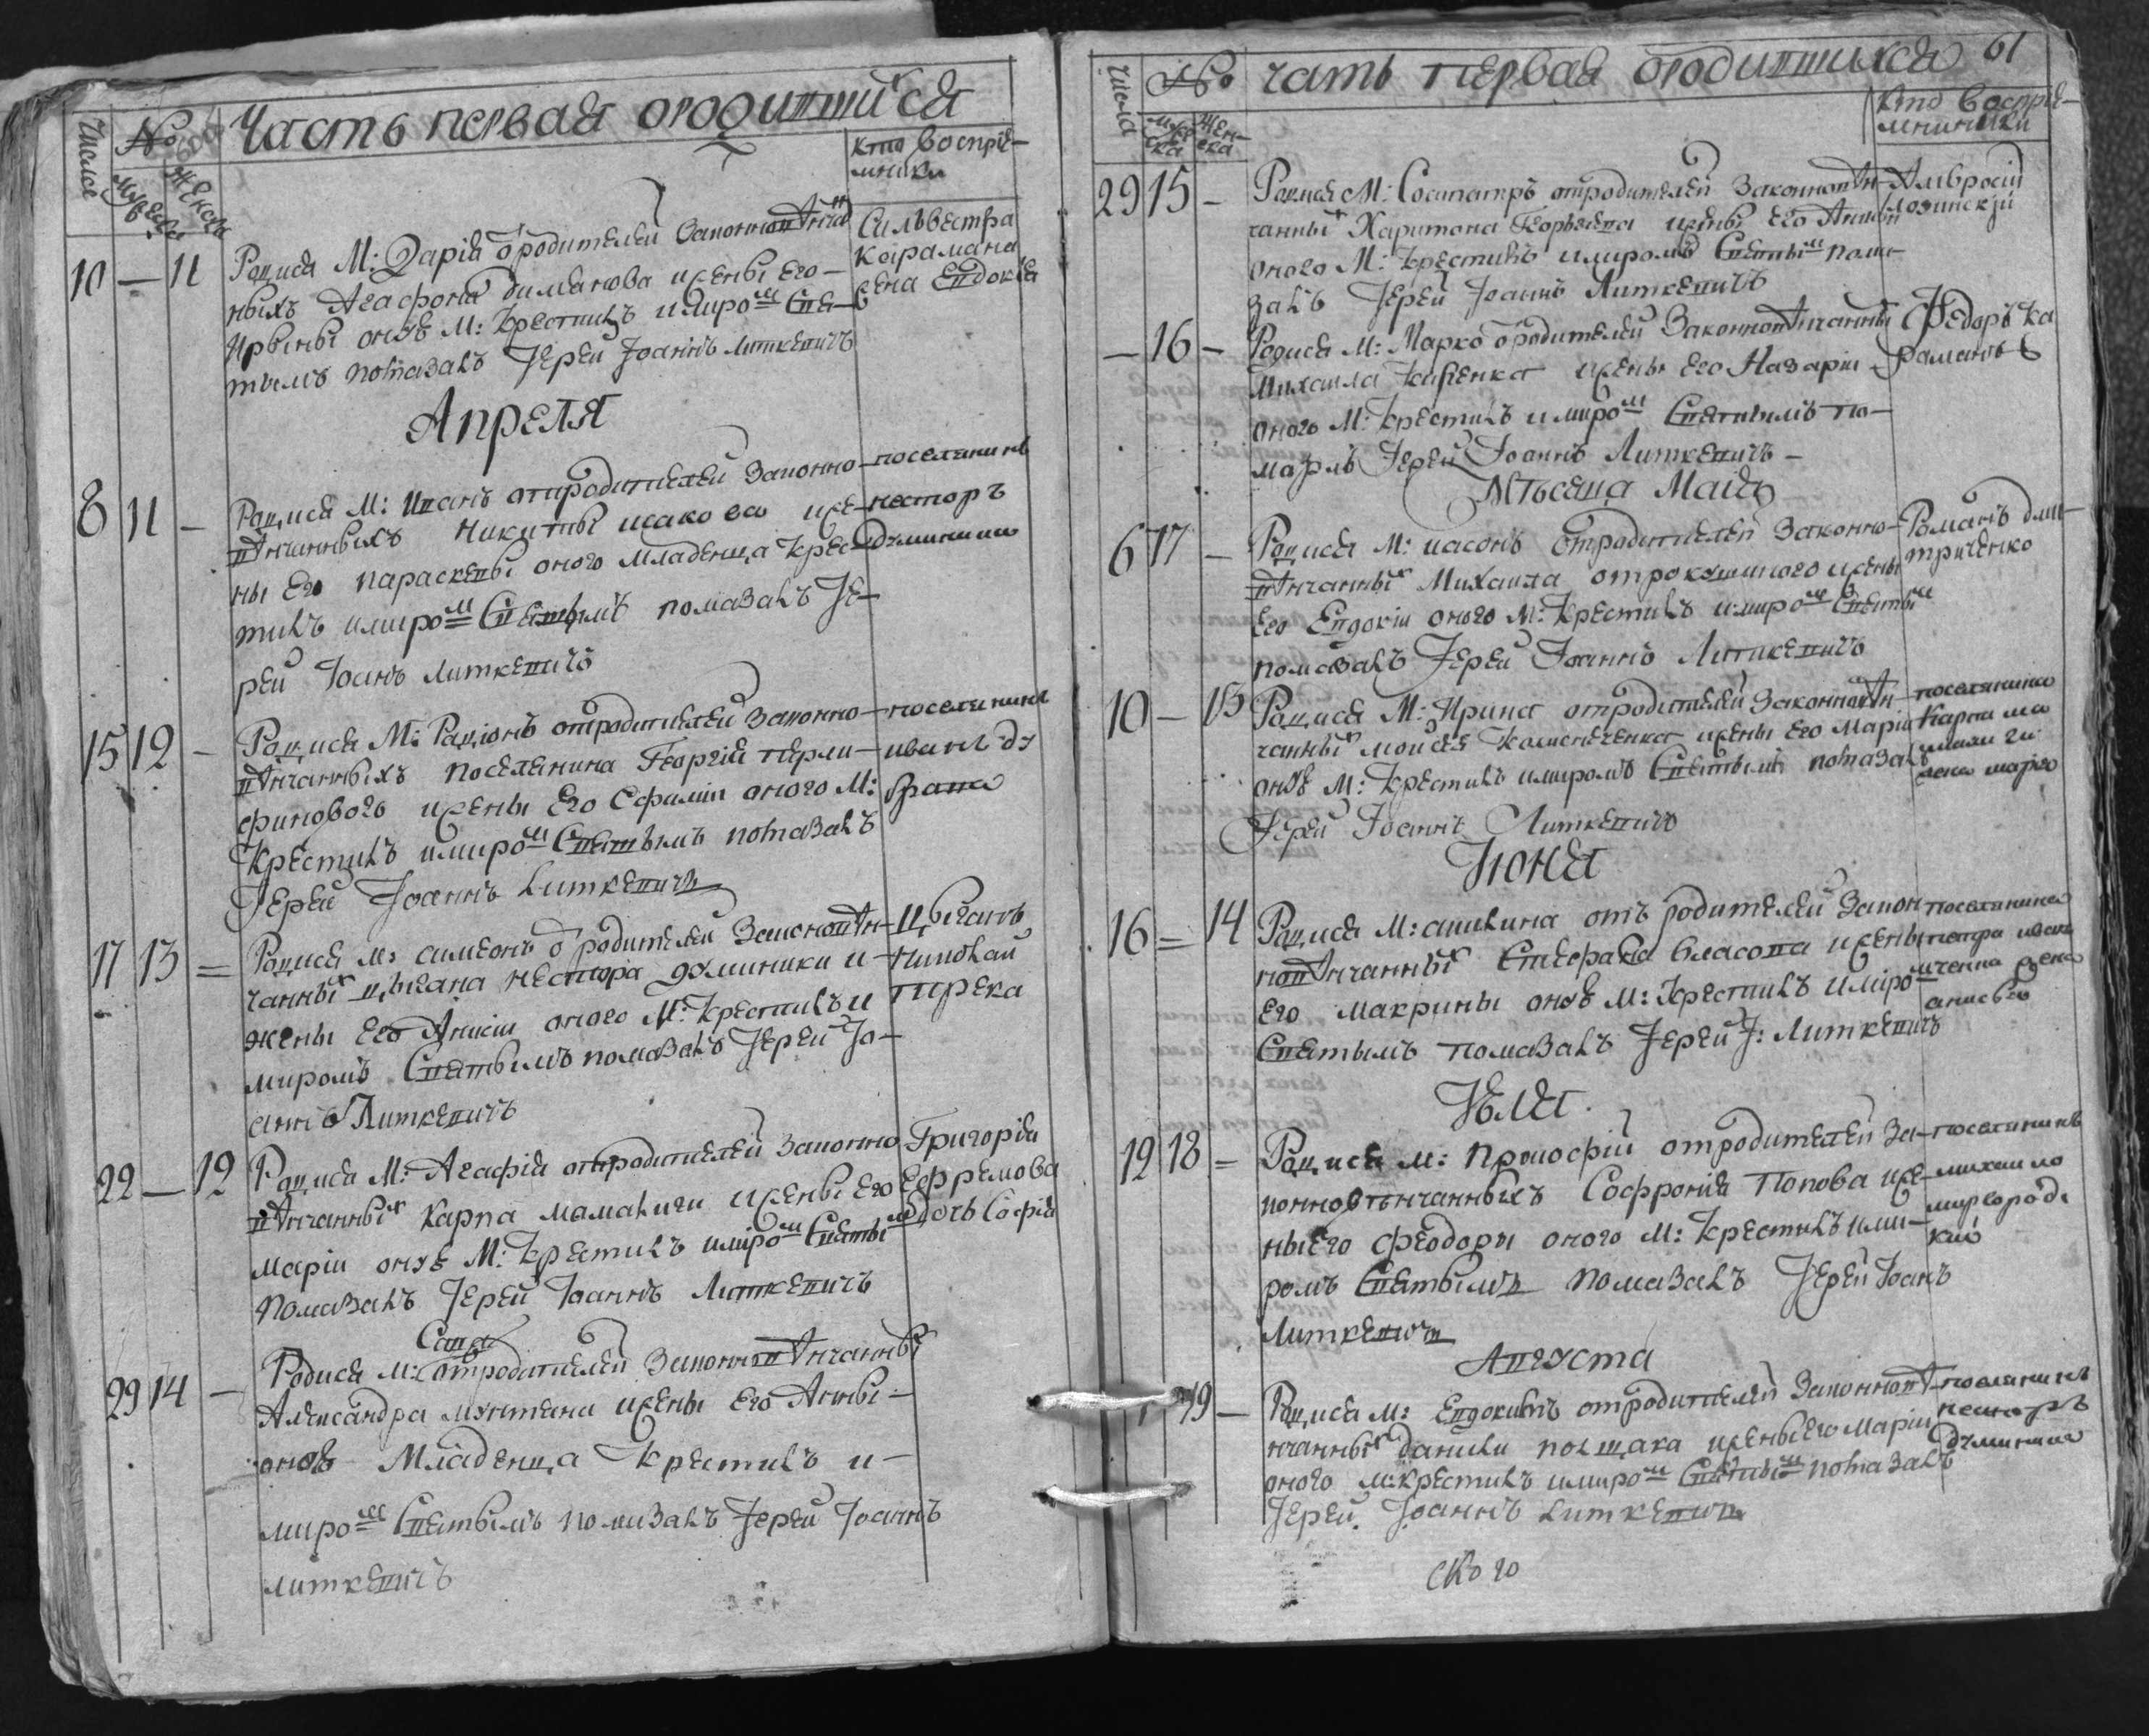 Часть первая ородившийся
Число
№
Мужеска
Женска
Кто Восприе-
мники
10 — 11
Родися М: Дарія ородителей Законновѣнча
ныхъ Агафона Диманова иЖены его
Ирыны онуѣ М: Крестилъ имиромъ Свя-
тымъ помазалъ Іерей Іоаннъ Литкевичъ
Силвестра
Кайрамана
Жена Евдокія
Апреля
8 11 —
Родися М: Иванъ отродителей Законно-
вѣнчанныхъ Никиты исакова иже-
ны Его параскевы оного Младенца Крес-
тилъ имиромъ Святымъ помазалъ Іе-
рей Іоанъ Литкевичъ
поселянинъ
несторъ
думинини
15 12 —
Родися М: Радіонъ отродителей Законно-
вѣнчанныхъ поселянина Георгія перли-
финового иЖены Его Ефиміи оного М:
Крестилъ имиромъ Святымъ помазалъ
Іерей Іоаннъ Литкевичъ
поселянинъ
иванъ ду
брава
17 13 =
Родися М: симеонъ ородителей Законовѣн-
чанныхъ цыгана нестора думиники и
жены Его Анисіи оного М: Крестилъ и
миромъ Святымъ помазалъ Іерей Іо-
аннъ Литкевичъ
Цыганъ
николай
тирека
22 — 12
Родися М: Агафія отродителей Законно
вѣнчанныхъ Карпа мамалиги иЖены Его
Маріи онуѣ М: Крестилъ имиромъ Святымъ
помазалъ Іерей Іоаннъ Литкевичъ
Григорія
Ефремова
дочь Софія
29 14 —
Сава
Родися М: отродителей Законновѣнчанны
Александра мунтяни иЖены Его Анны
оноѣ Младенца Крестилъ и
миромъ Святымъ помазалъ Іерей Іоаннъ
Литкевичъ
61
Числа
№
чать первая ородившихся
Муже
ска
Жен-
ска
Кто Восприе-
мниники
29 15 —
Родися М: Сосипатръ отродителей Законновѣн-
чанныхъ Харитона Георгіева иЖены Его Анны
оного М: Крестилъ имиромъ Святымъ пома-
залъ Іерей Іоаннъ Литкевичъ
Амвросій
Лозинскій
— 16 —
Родися М: Марко ородителей Законновѣнчанны
Михаила иЖены Его Назаріи
оного М: Крестилъ имиромъ Святымъ по-
мазлъ Іерей Іоаннъ Литкевичъ
Федоръ Ка
раманъ
Мѣсяца Маія
6 17 —
Родися М: иасонъ отродителей Законно-
вѣнчанныхъ Михаила отрокушного иЖены
Его Евдокіи оного М: Крестилъ имиромъ Святымъ
помазалъ Іерей Іоаннъ Литкевичъ
Романъ дми-
триченко
10 — 13
Родися М: Ирина отродителей Законновѣн-
чанныхъ моисея иЖены Его Маріи
онуѣ М: Крестилъ имиромъ Святымъ помазалъ
Іерей Іоаннъ Литкевичъ
поселянина
Карпа ма
мали ги
жена марія
Іюня
16 = 14
Родися М: акилина отъ родителей Закон
новѣнчанныхъ Стефана Власова иЖены
Его Макрины онуѣ М: Крестилъ имиромъ
Святымъ помазалъ Іерей І: Литкевичъ
поселянина
петра иван
ченка жена
Іюля
19 18 =
Родися М: Прокофій отродителей За-
конновѣнчанныхъ Софронія Попова иже-
ныЕго Феодоры оного М: Крестилъ ими-
ромъ Святымъ помазалъ Іерей Іоанъ
Литкевичъ
поселянинъ
михаило
миргород
кій
Августа
19 —
Родися М: Евдокимъ отродителей Законновѣ-
нчанныхъ Данила полщака иЖеныЕго Маріи
оного М: Крестилъ имиромъ Святымъ помазалъ
Іерей Іоаннъ Литкевичъ
поселянинъ
несторъ
думиника